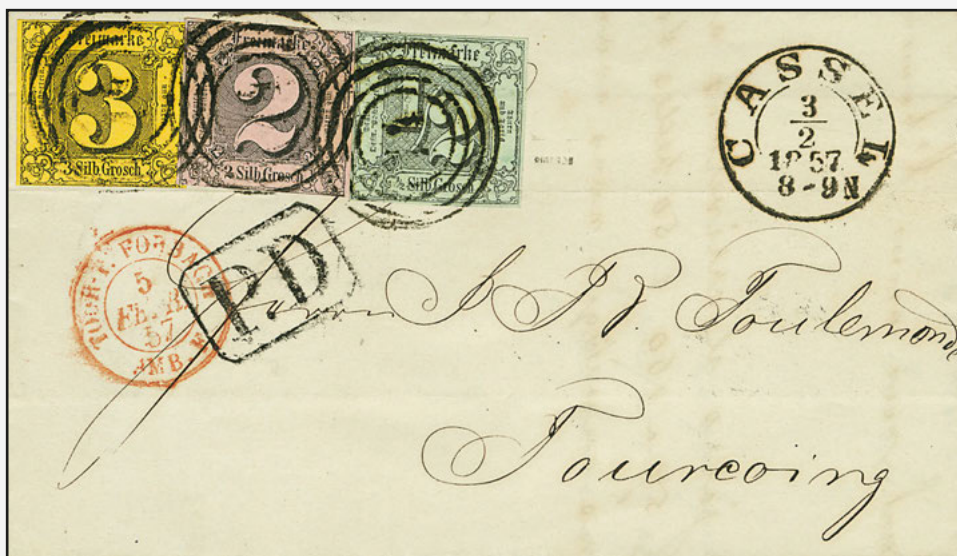 Freimarke
3
3 Silb Grosch
Freimarke
2
2 Silb Grosch
Freimarke
1/2
1/2 Silb Grosch
CASSEL
3
2
1857
8-9N
TOUR-T. FORBACH
5
FEVR.
57
AMB.
PD
Herrn J. P. Toulemonde
Tourcoing